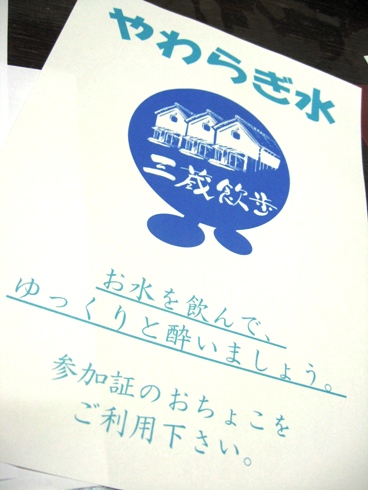 やわらぎ水
三蔵飲歩
お水を飲んで、
ゆっくりと酔いましょう。
参加証のおちょこを
ご利用下さい。